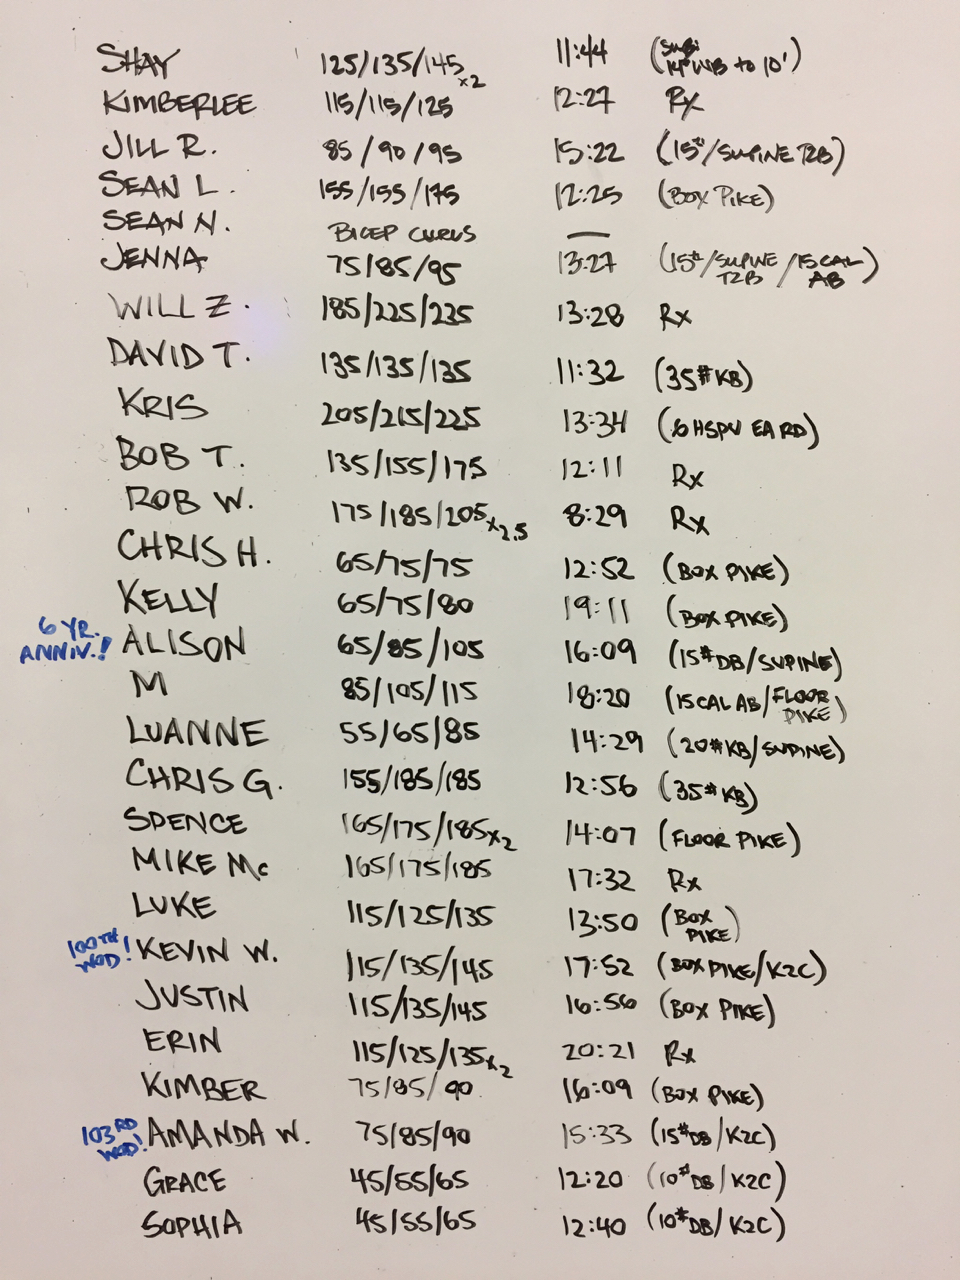 SHAY 125/135/145 x2 11:44 (SUB: 14' WB to 10')
KIMBERLEE 115/115/125 12:27 Rx
JILL R. 85/90/95 15:22 (15#/SUPINE T2B)
SEAN L. 155/155/175 12:25 (BOX PIKE)
SEAN N. BICEP CURLS —
JENNA 75/85/95 13:27 (15#/SUPINE T2B/15 CAL AB)
WILL Z. 185/225/235 13:28 Rx
DAVID T. 135/135/135 11:32 (35# KB)
KRIS 205/215/225 13:34 (6 HSPU EA RD)
BOB T. 135/155/175 12:11 Rx
ROB W. 175/185/205 x2.5 8:29 Rx
CHRIS H. 65/75/75 12:52 (BOX PIKE)
KELLY 65/75/80 19:11 (BOX PIKE)
6 YR. ANNIV.! ALISON 65/85/105 16:09 (15# DB/SUPINE)
M 85/105/115 18:20 (15 CAL AB/FLOOR PIKE)
LUANNE 55/65/85 14:29 (20# KB/SUPINE)
CHRIS G. 155/185/185 12:56 (35# KB)
SPENCE 165/175/185 x2 14:07 (FLOOR PIKE)
MIKE Mc 165/175/185 17:32 Rx
LUKE 115/125/135 13:50 (BOX PIKE)
100TH WOD! KEVIN W. 115/135/145 17:52 (BOX PIKE/K2C)
JUSTIN 115/135/145 16:56 (BOX PIKE)
ERIN 115/125/135 x2 20:21 Rx
KIMBER 75/85/90 16:09 (BOX PIKE)
103RD WOD! AMANDA W. 75/85/90 15:33 (15# DB/K2C)
GRACE 45/55/65 12:20 (10# DB/K2C)
SOPHIA 45/55/65 12:40 (10# DB/K2C)